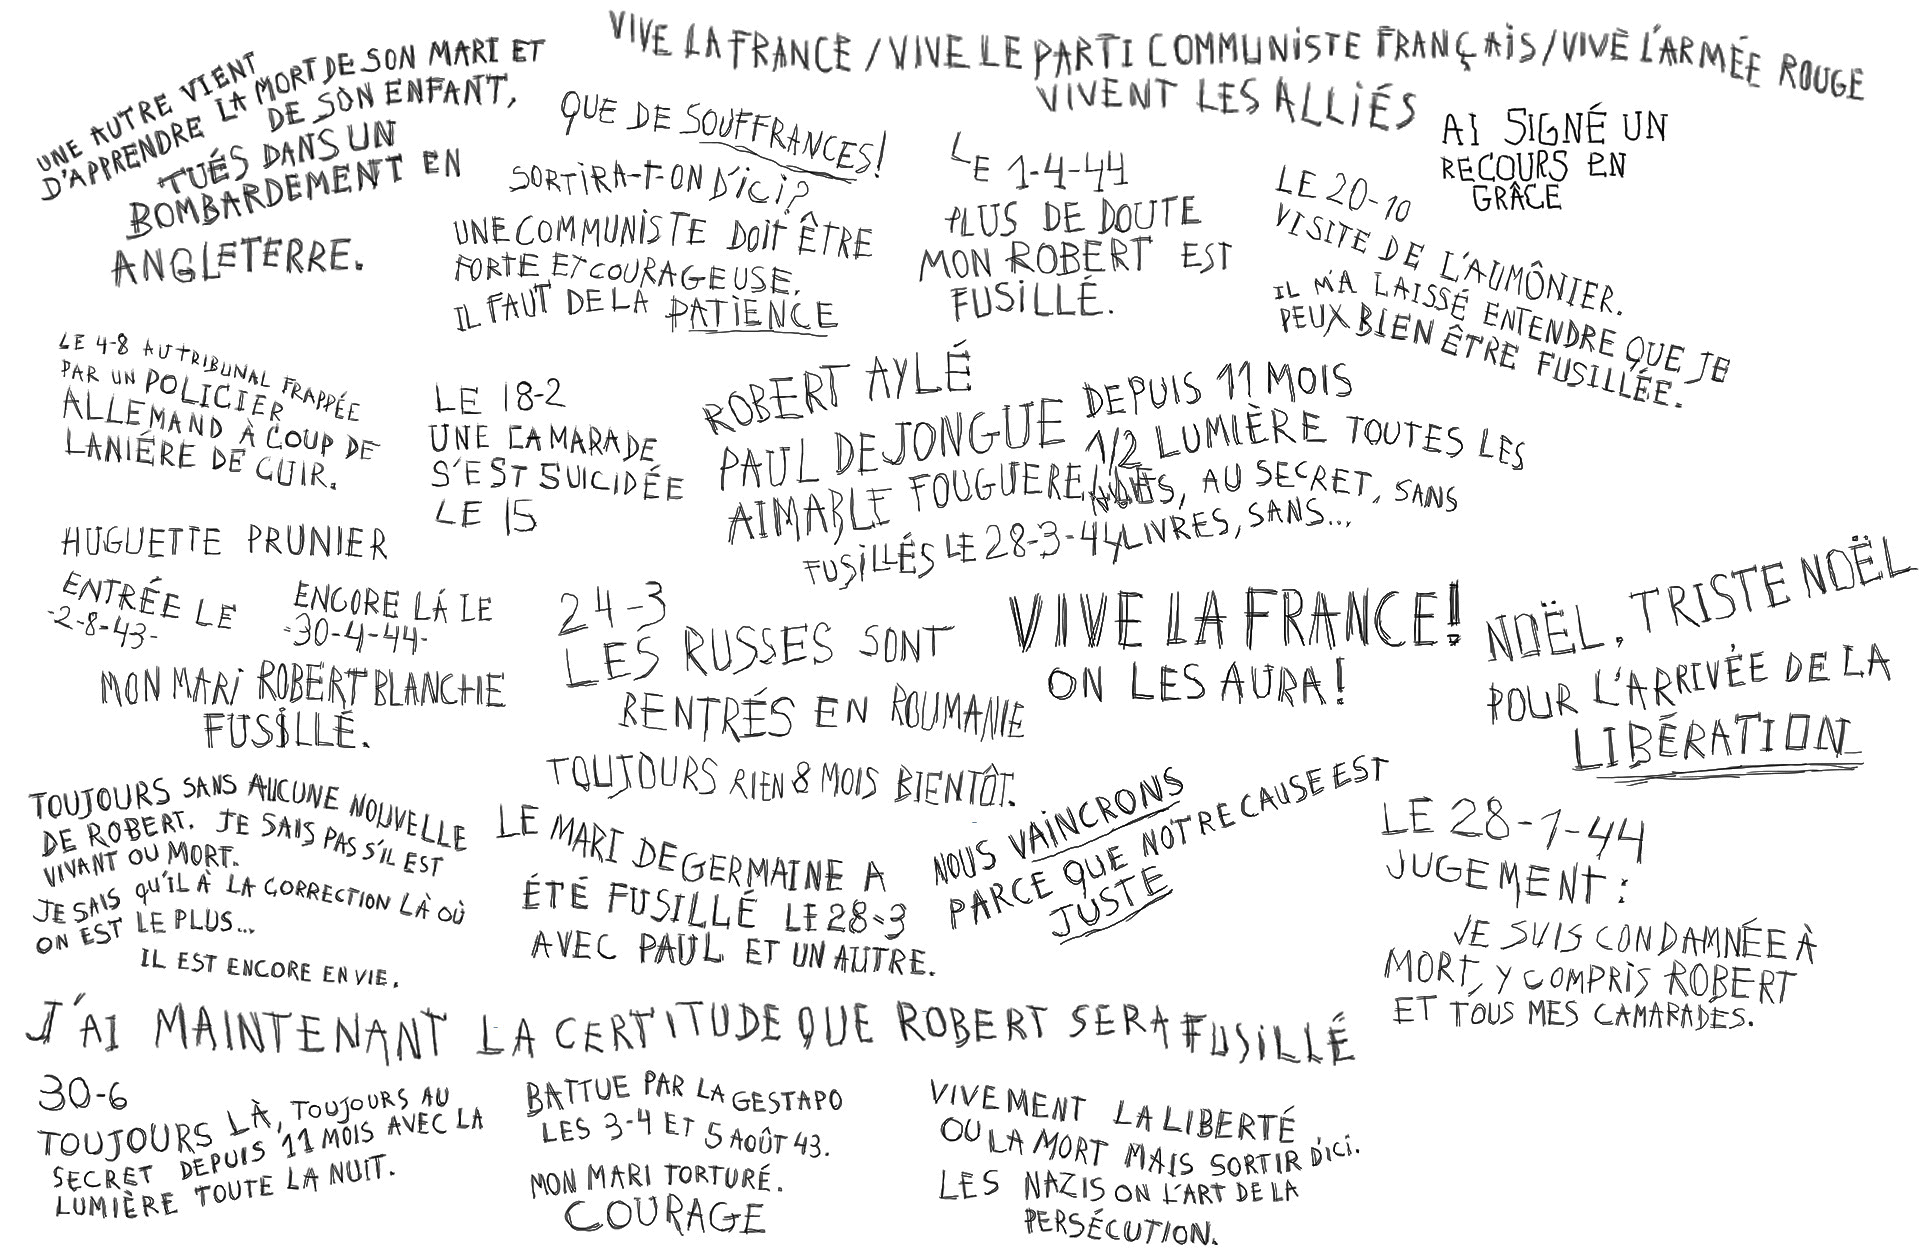 VIVE LA FRANCE / VIVE LE PARTI COMMUNISTE FRANÇAIS / VIVE L'ARMÉE ROUGE
VIVENT LES ALLIÉS
UNE AUTRE VIENT
D'APPRENDRE LA MORT DE SON MARI ET
DE SON ENFANT,
TUÉS DANS UN
BOMBARDEMENT EN
ANGLETERRE.
QUE DE SOUFFRANCES!
SORTIRA-T-ON D'ICI?
UNE COMMUNISTE DOIT ÊTRE
FORTE ET COURAGEUSE.
IL FAUT DE LA PATIENCE
LE 1-4-44
PLUS DE DOUTE
MON ROBERT EST
FUSILLÉ.
AI SIGNÉ UN
RECOURS EN
GRÂCE
LE 20-10
VISITE DE L'AUMÔNIER.
IL M'A LAISSÉ ENTENDRE QUE JE
PEUX BIEN ÊTRE FUSILLÉE.
LE 4-8 AU TRIBUNAL FRAPPÉE
PAR UN POLICIER
ALLEMAND À COUP DE
LANIÉRE DE CUIR.
LE 18-2
UNE CAMARADE
S'EST SUICIDÉE
LE 15
ROBERT AYLÉ
PAUL DEJONGUE
AIMABLE FOUGUERE
FUSILLÉS LE 28-3-44
DEPUIS 11 MOIS
1/2 LUMIÈRE TOUTES LES
NUITS, AU SECRET, SANS
LIVRES, SANS...
HUGUETTE PRUNIER
ENTRÉE LE
-2-8-43-
ENCORE LÁ LE
-30-4-44-
MON MARI ROBERT BLANCHE
FUSILLÉ.
24-3
LES RUSSES SONT
RENTRÉS EN ROUMANIE
TOUJOURS RIEN 8 MOIS BIENTÔT.
VIVE LA FRANCE!
ON LES AURA!
NOËL, TRISTE NOËL
POUR L'ARRIVÉE DE LA
LIBÉRATION
TOUJOURS SANS AUCUNE NOUVELLE
DE ROBERT. JE SAIS PAS S'IL EST
VIVANT OU MORT.
JE SAIS QU'IL À LA CORRECTION LÀ OÙ
ON EST LE PLUS...
IL EST ENCORE EN VIE.
LE MARI DE GERMAINE A
ÉTÉ FUSILLÉ LE 28-3
AVEC PAUL ET UN AUTRE.
NOUS VAINCRONS
PARCE QUE NOTRE CAUSE EST
JUSTE
LE 28-1-44
JUGEMENT :
JE SUIS CONDAMNÉE À
MORT, Y COMPRIS ROBERT
ET TOUS MES CAMARADES.
J'AI MAINTENANT LA CERTITUDE QUE ROBERT SERA FUSILLÉ
30-6
TOUJOURS LÀ, TOUJOURS AU
SECRET DEPUIS 11 MOIS AVEC LA
LUMIÈRE TOUTE LA NUIT.
BATTUE PAR LA GESTAPO
LES 3-4 ET 5 AOÛT 43.
MON MARI TORTURÉ.
COURAGE
VIVEMENT LA LIBERTÉ
OU LA MORT MAIS SORTIR D'ICI.
LES NAZIS ON L'ART DE LA
PERSÉCUTION.